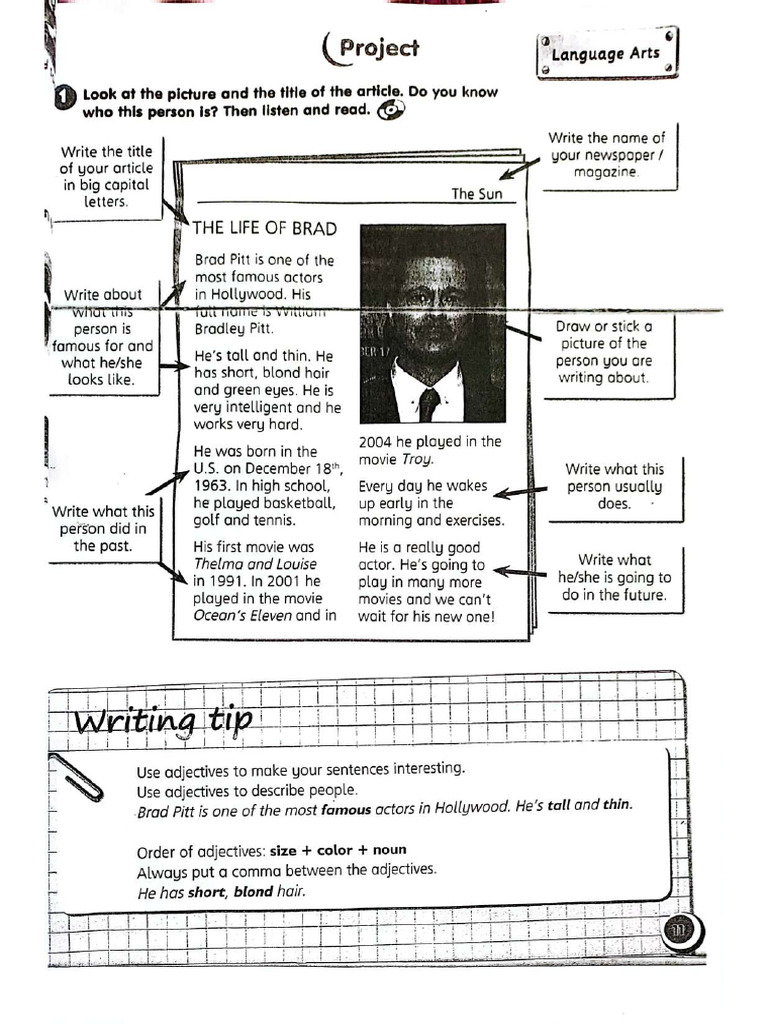 Project
Language Arts
1 Look at the picture and the title of the article. Do you know
who this person is? Then listen and read.
Write the title
of your article
in big capital
letters.
Write the name of
your newspaper /
magazine.
The Sun
THE LIFE OF BRAD
Brad Pitt is one of the
most famous actors
in Hollywood. His
full name is William
Bradley Pitt.
He's tall and thin. He
has short, blond hair
and green eyes. He is
very intelligent and he
works very hard.
He was born in the
U.S. on December 18th,
1963. In high school,
he played basketball,
golf and tennis.
His first movie was
Thelma and Louise
in 1991. In 2001 he
played in the movie
Ocean's Eleven and in
BER 17
2004 he played in the
movie Troy.
Every day he wakes
up early in the
morning and exercises.
He is a really good
actor. He's going to
play in many more
movies and we can't
wait for his new one!
Write about
what this
person is
famous for and
what he/she
looks like.
Write what this
person did in
the past.
Draw or stick a
picture of the
person you are
writing about.
Write what this
person usually
does.
Write what
he/she is going to
do in the future.
Writing tip
Use adjectives to make your sentences interesting.
Use adjectives to describe people.
Brad Pitt is one of the most famous actors in Hollywood. He's tall and thin.
Order of adjectives: size + color + noun
Always put a comma between the adjectives.
He has short, blond hair.
11